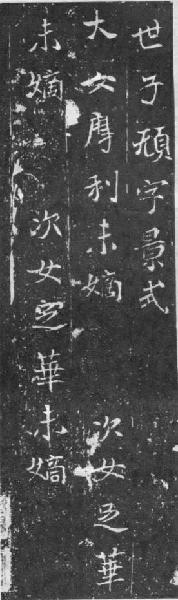 世子 字景式
大女摩利未嫡 次女 華
未嫡 次女 華未嫡